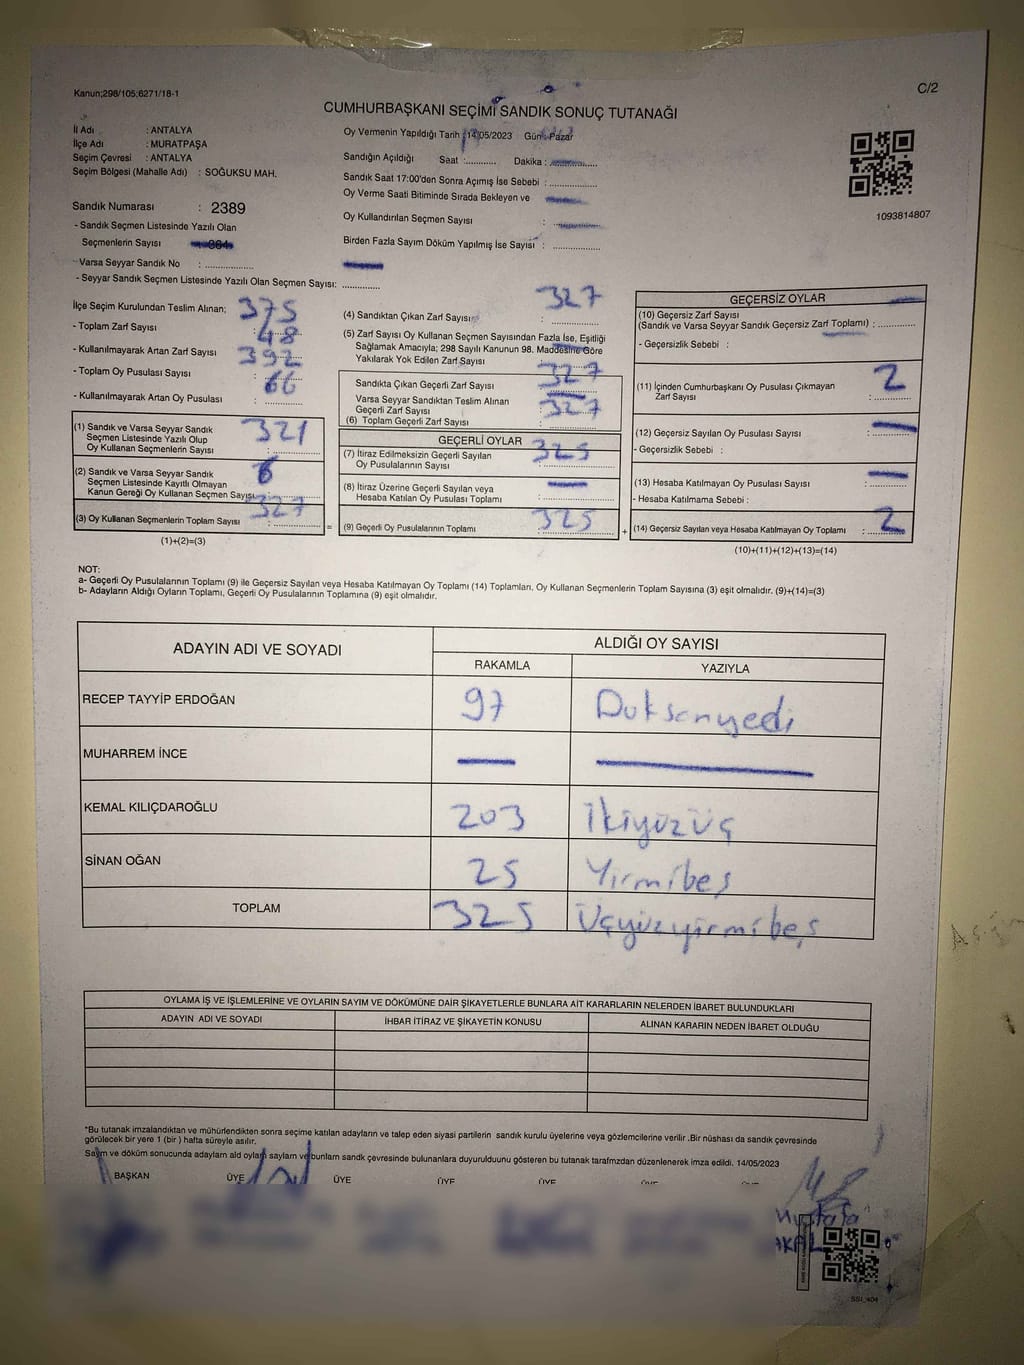 Kanun;298/105;6271/18-1
C/2
CUMHURBAŞKANI SEÇİMİ SANDIK SONUÇ TUTANAĞI
İl Adı : ANTALYA
İlçe Adı : MURATPAŞA
Seçim Çevresi : ANTALYA
Seçim Bölgesi (Mahalle Adı) : SOĞUKSU MAH.
Sandık Numarası : 2389
- Sandık Seçmen Listesinde Yazılı Olan
Seçmenlerin Sayısı
- Varsa Seyyar Sandık No : ................
- Seyyar Sandık Seçmen Listesinde Yazılı Olan Seçmen Sayısı: ............
Oy Vermenin Yapıldığı Tarih : 14/05/2023 Gün : Pazar
Sandığın Açıldığı Saat :.......... Dakika :
Sandık Saat 17:00'den Sonra Açımış İse Sebebi : ................
Oy Verme Saati Bitiminde Sırada Bekleyen ve
Oy Kullandırılan Seçmen Sayısı :
Birden Fazla Sayım Döküm Yapılmış İse Sayısı : ..............
1093814807
İlçe Seçim Kurulundan Teslim Alınan;
- Toplam Zarf Sayısı : 375
- Kullanılmayarak Artan Zarf Sayısı : 48
- Toplam Oy Pusulası Sayısı : 392
- Kullanılmayarak Artan Oy Pusulası : 66
(1) Sandık ve Varsa Seyyar Sandık
Seçmen Listesinde Yazılı Olup
Oy Kullanan Seçmenlerin Sayısı : 321
(2) Sandık ve Varsa Seyyar Sandık
Seçmen Listesinde Kayıtlı Olmayan
Kanun Gereği Oy Kullanan Seçmen Sayısı: 6
(3) Oy Kullanan Seçmenlerin Toplam Sayısı : 327
(1)+(2)=(3)
(4) Sandıktan Çıkan Zarf Sayısı : 327
(5) Zarf Sayısı Oy Kullanan Seçmen Sayısından Fazla İse, Eşitliği
Sağlamak Amacıyla; 298 Sayılı Kanunun 98. Maddesine Göre
Yakılarak Yok Edilen Zarf Sayısı :
Sandıkta Çıkan Geçerli Zarf Sayısı : 327
Varsa Seyyar Sandıktan Teslim Alınan
Geçerli Zarf Sayısı :
(6) Toplam Geçerli Zarf Sayısı : 327
GEÇERLİ OYLAR
(7) İtiraz Edilmeksizin Geçerli Sayılan
Oy Pusulalarının Sayısı : 325
(8) İtiraz Üzerine Geçerli Sayılan veya
Hesaba Katılan Oy Pusulası Toplamı :
= (9) Geçerli Oy Pusulalarının Toplamı : 325 +
GEÇERSİZ OYLAR
(10) Geçersiz Zarf Sayısı
(Sandık ve Varsa Seyyar Sandık Geçersiz Zarf Toplamı) : ............
- Geçersizlik Sebebi :
(11) İçinden Cumhurbaşkanı Oy Pusulası Çıkmayan
Zarf Sayısı : 2
(12) Geçersiz Sayılan Oy Pusulası Sayısı :
- Geçersizlik Sebebi :
(13) Hesaba Katılmayan Oy Pusulası Sayısı :
- Hesaba Katılmama Sebebi :
(14) Geçersiz Sayılan veya Hesaba Katılmayan Oy Toplamı : 2
(10)+(11)+(12)+(13)=(14)
NOT:
a- Geçerli Oy Pusulalarının Toplamı (9) ile Geçersiz Sayılan veya Hesaba Katılmayan Oy Toplamı (14) Toplamları, Oy Kullanan Seçmenlerin Toplam Sayısına (3) eşit olmalıdır. (9)+(14)=(3)
b- Adayların Aldığı Oyların Toplamı, Geçerli Oy Pusulalarının Toplamına (9) eşit olmalıdır.
ADAYIN ADI VE SOYADI ALDIĞI OY SAYISI
RAKAMLA YAZIYLA
RECEP TAYYİP ERDOĞAN 97 Doksanyedi
MUHARREM İNCE
KEMAL KILIÇDAROĞLU 203 İkiyüzüç
SİNAN OĞAN 25 Yirmibeş
TOPLAM 325 Üçyüzyirmibeş
OYLAMA İŞ VE İŞLEMLERİNE VE OYLARIN SAYIM VE DÖKÜMÜNE DAİR ŞİKAYETLERLE BUNLARA AİT KARARLARIN NELERDEN İBARET BULUNDUKLARI
ADAYIN ADI VE SOYADI İHBAR İTİRAZ VE ŞİKAYETİN KONUSU ALINAN KARARIN NEDEN İBARET OLDUĞU
*Bu tutanak imzalandıktan ve mühürlendikten sonra seçime katılan adayların ve talep eden siyasi partilerin sandık kurulu üyelerine veya gözlemcilerine verilir .Bir nüshası da sandık çevresinde
görülecek bir yere 1 (bir ) hafta süreyle asılır.
Sayım ve döküm sonucunda adayların ald oyların saylam ve bunlarn sandk çevresinde bulunanlara duyurulduunu gösteren bu tutanak tarafmzdan düzenlenerek imza edildi. 14/05/2023
BAŞKAN ÜYE ÜYE ÜYE ÜYE
Mustafa
AKAL
SSI_404